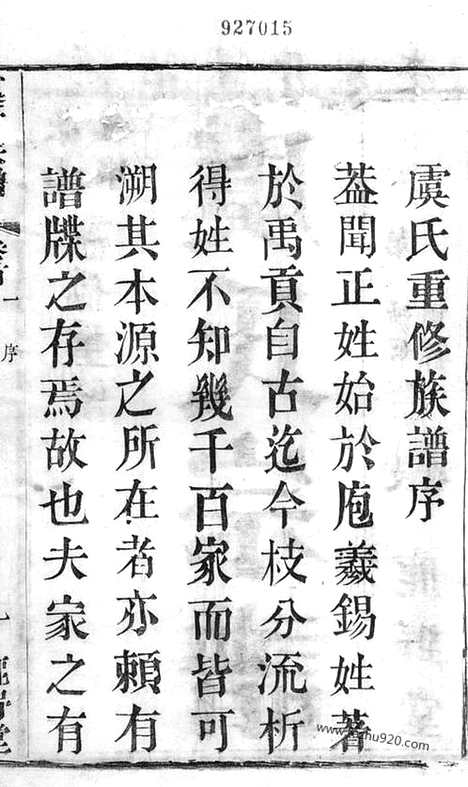 927015
虞氏重修族譜序
葢聞正姓始於庖羲錫姓著
於禹貢自古迄今枝分流析
得姓不知幾千百家而皆可
溯其本源之所在者亦頼有
譜牒之存焉故也夫家之有
序
一